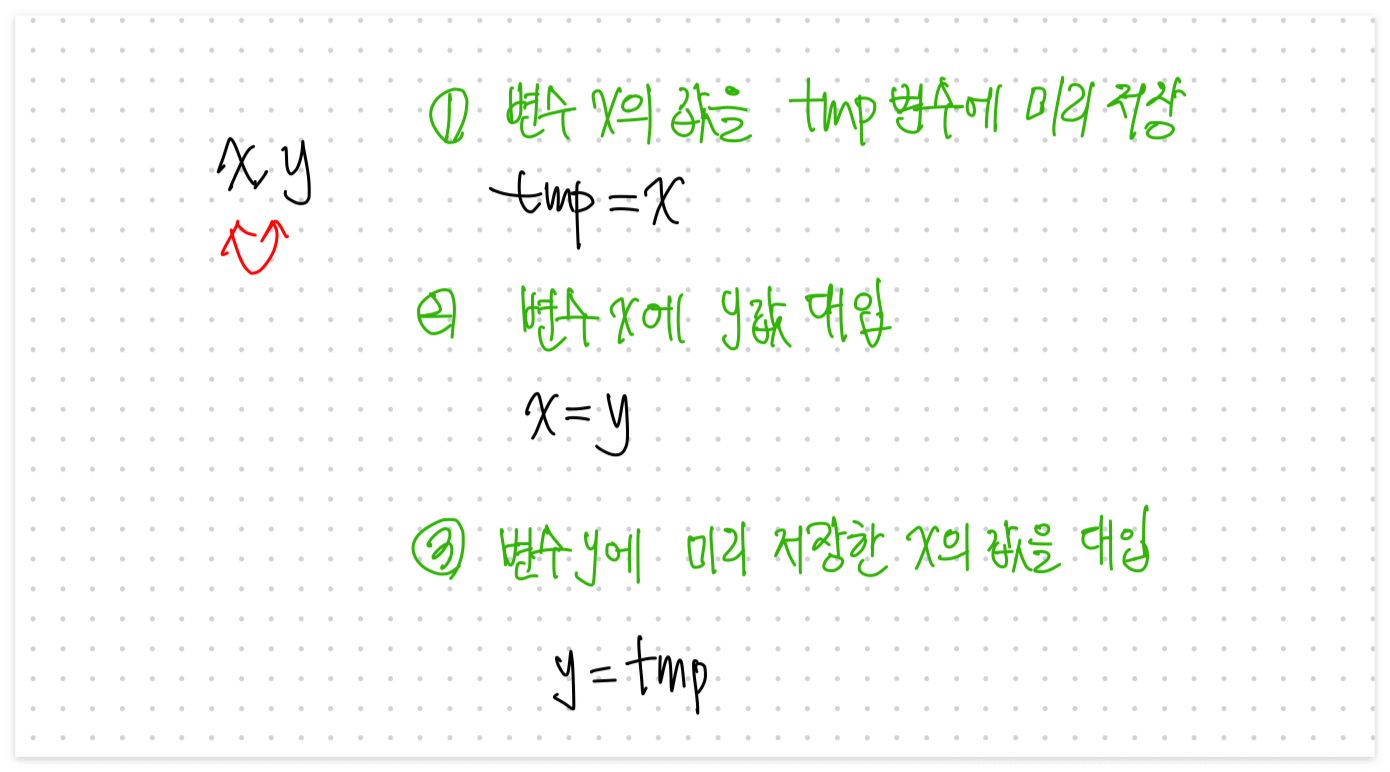 x, y
① 변수 x의 값을 tmp 변수에 미리 저장
tmp = x
② 변수 x에 y값 대입
x = y
③ 변수 y에 미리 저장한 x의 값을 대입
y = tmp